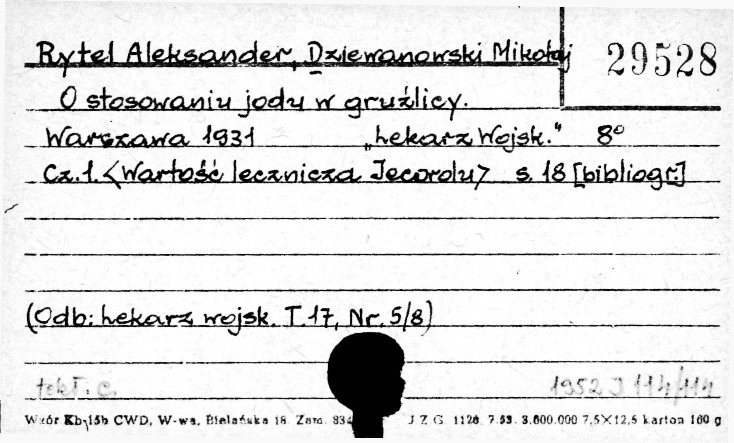 Rytel Aleksander, Dziewanowski Mikołaj
29528
O stosowaniu jodu w gruźlicy.
Warszawa 1931 „Lekarz Wojsk." 8°
Cz.1. <Wartość lecznicza Jecorolu> s. 18 [bibliogr.]
(Odb: Lekarz wojsk. T.17, Nr. 5/8)
tekt. c. 1952 J 114/414
Wzór Kb-15b CWD, W-wa, Bielańska 18. Zam. 834 J.Z.G. 1126. 7.53. 3.600.000 7,5×12,5 karton 160 g